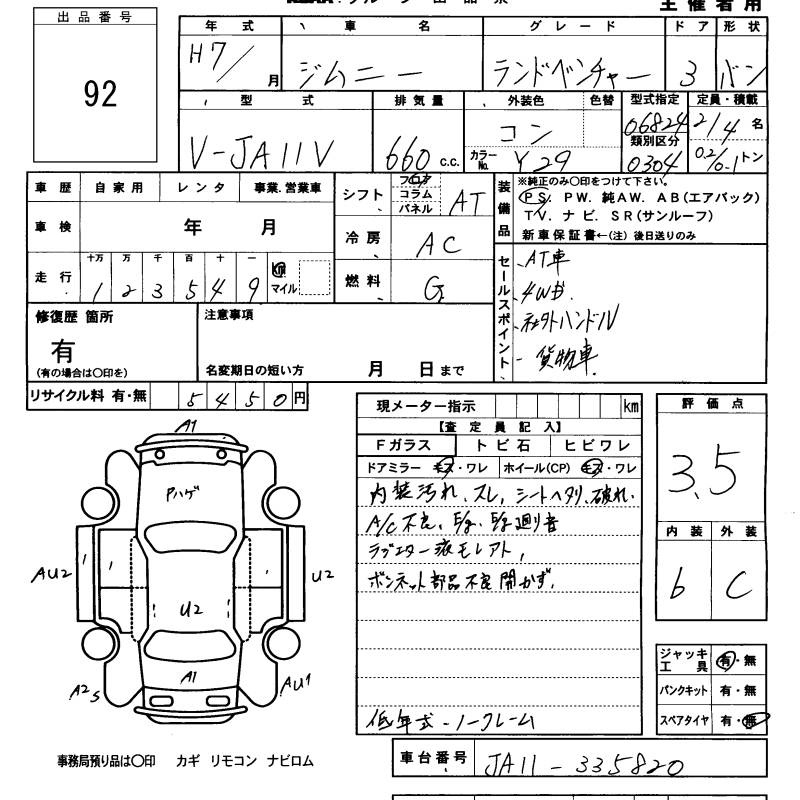 主催者用
出品番号
92
年式 車名 グレード ドア 形状
H7/ 月 ジムニー ランドベンチャー 3 バン
型式 排気量 外装色 色替 型式指定 定員・積載
V-JA11V 660 c.c. コン 06824 2/4 名
カラーNo. Y29 類別区分 0304 0.2/0.1 トン
車歴 自家用 レンタ 事業.営業車
シフト フロア コラム パネル AT
車検 年 月
冷房 AC
走行 十万 万 千 百 十 一
1 2 3 5 4 9 km マイル
燃料 G
装備品
※純正のみ〇印をつけて下さい。
PS. PW. 純AW. AB(エアバック)
TV. ナビ. SR(サンルーフ)
新車保証書←(注)後日送りのみ
セールスポイント
AT車
4WD
社外ハンドル
貨物車
修復歴 箇所
有
(有の場合は〇印を)
注意事項
名変期日の短い方 月 日まで
リサイクル料 有・無 5450円
現メーター指示 km
【査定員記入】
Fガラス トビ石 ヒビワレ
ドアミラー キズ・ワレ ホイール(CP) キズ・ワレ
内装汚れ、スレ、シートヘタリ、破れ.
A/C不良、E/g、E/g廻り音
ラジエター液モレアト,
ボンネット部品不良開かず.
低年式-ノークレーム
評価点
3.5
内装 外装
b C
ジャッキ工具 有・無
パンクキット 有・無
スペアタイヤ 有・無
A1
Pハゲ
AU2
U2
U2
A1
A2S
AU1
事務局預り品は〇印 カギ リモコン ナビロム
車台番号 JA11-335820